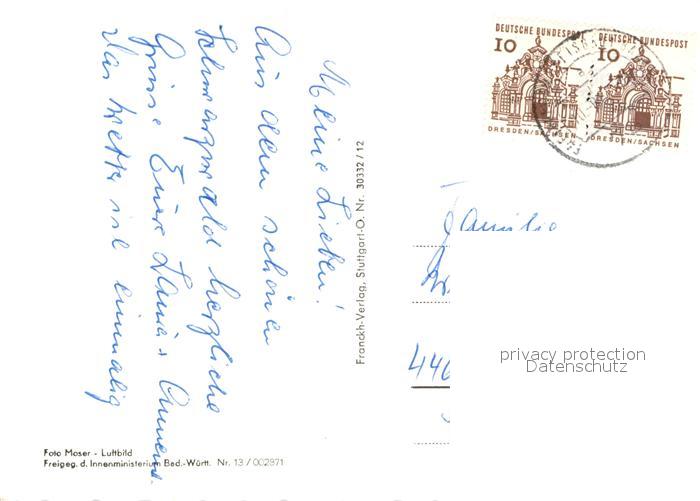 Meine Lieben!
Aus dem schönen
Schwarzwald herzliche
Grüsse Eure
Das Wetter ist einmalig
Franckh-Verlag, Stuttgart-O. Nr. 30332/12
Foto Moser - Luftbild
Freigeg. d. Innenministerium Bad.-Württ. Nr. 13/002871
DEUTSCHE BUNDESPOST
10
DRESDEN/SACHSEN
DEUTSCHE BUNDESPOST
10
DRESDEN/SACHSEN
Familie
440
privacy protection
Datenschutz